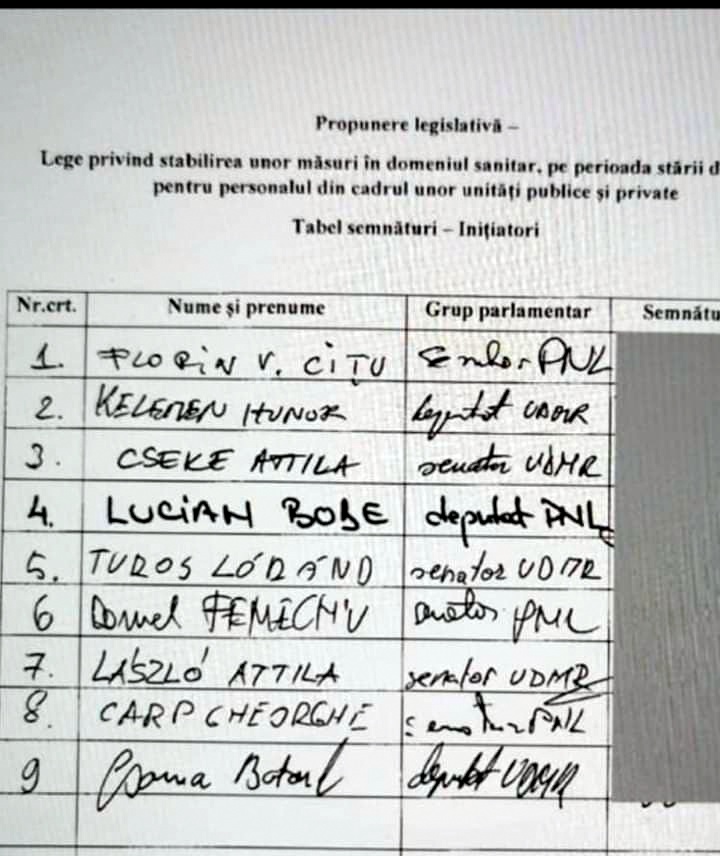 Propunere legislativă –
Lege privind stabilirea unor măsuri în domeniul sanitar, pe perioada stării d
pentru personalul din cadrul unor unități publice și private
Tabel semnături – Inițiatori
Nr.crt. Nume și prenume Grup parlamentar Semnătu
1. FLORIN V. CÎȚU Senator PNL
2. KELEMEN HUNOR deputat UDMR
3. CSEKE ATTILA senator UDMR
4. LUCIAN BODE deputat PNL
5. TUROS LÓRÁND senator UDMR
6 Daniel FENECHIU senator PNL
7. LÁSZLÓ ATTILA senator UDMR
8. CARP GHEORGHE senator PNL
9 Botond deputat UDMR